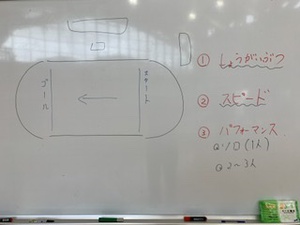 ゴール
スタート
① しょうがいぶつ
② スピード
③ パフォーマンス
ソロ(1人)
2〜3人